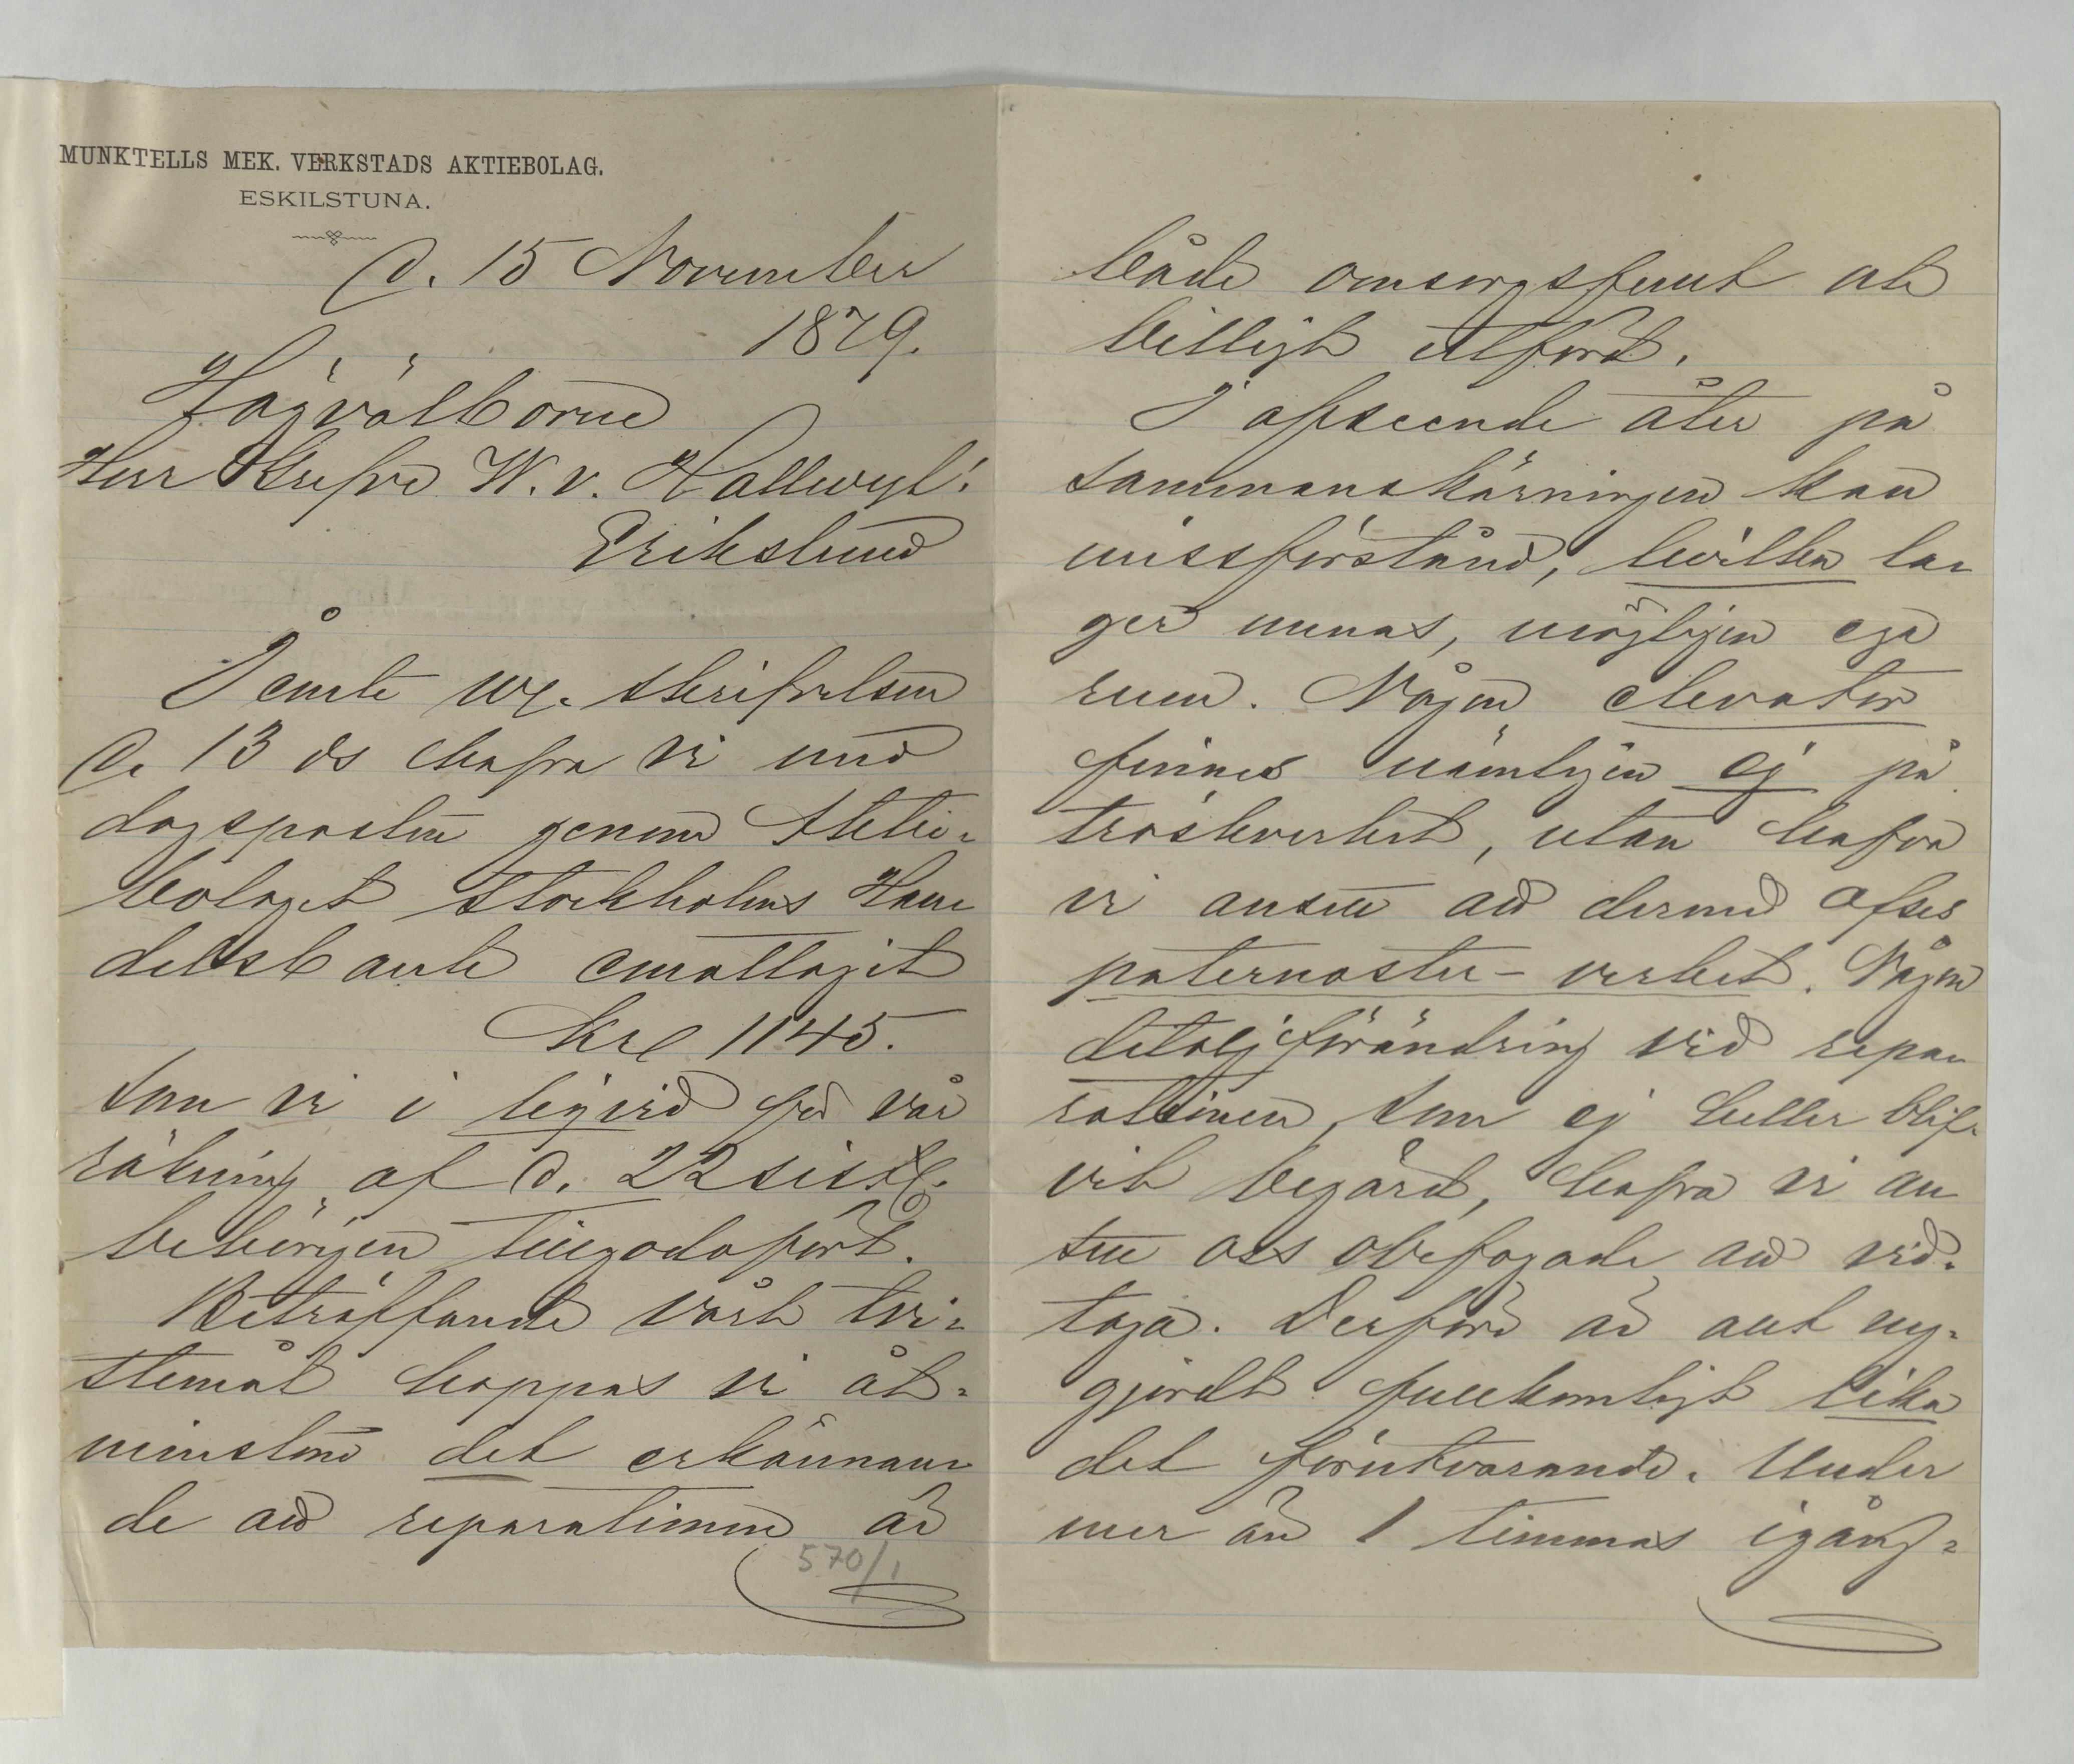 MUNKTELLS MEK. VERKSTADS AKTIEBOLAG.
ESKILSTUNA.
d. 15 November
1879.
Högvälborne
Herr Grefve W. v. Hallwyl!
Erikslund
Jemte skrifvelsen
d. 13 ds hafva vi med
dagsposten genom Aktie-
bolaget Stockholms Han
delsbank emottagit
Kr 1145.
som vi i liqvid för vår
räkning af d. 22 sistl.
behörigen tillgodofört.
Beträffande vårt tvi-
stemål hoppas vi åt-
minstone det erkännan
de att reparationen är
570/1
både omsorgsfullt och
billigt utförd.
I afseende åter på
sammanskärningen kan
missförstånd, hvilken la
ger menas, möjligen ega
rum. Någon elevator
finnes nämligen ej på
tröskverket, utan hafva
vi ansett att dermed afses
paternoster-verket. Någon
detaljförändring vid repa
rationen, som ej heller blif-
vit begärd, hafva vi an
sett oss obefogade att vid-
taga. Derför är allt ny-
gjordt fullkomligt lika
det förutvarande. Under
mer än 1 timmas igång-